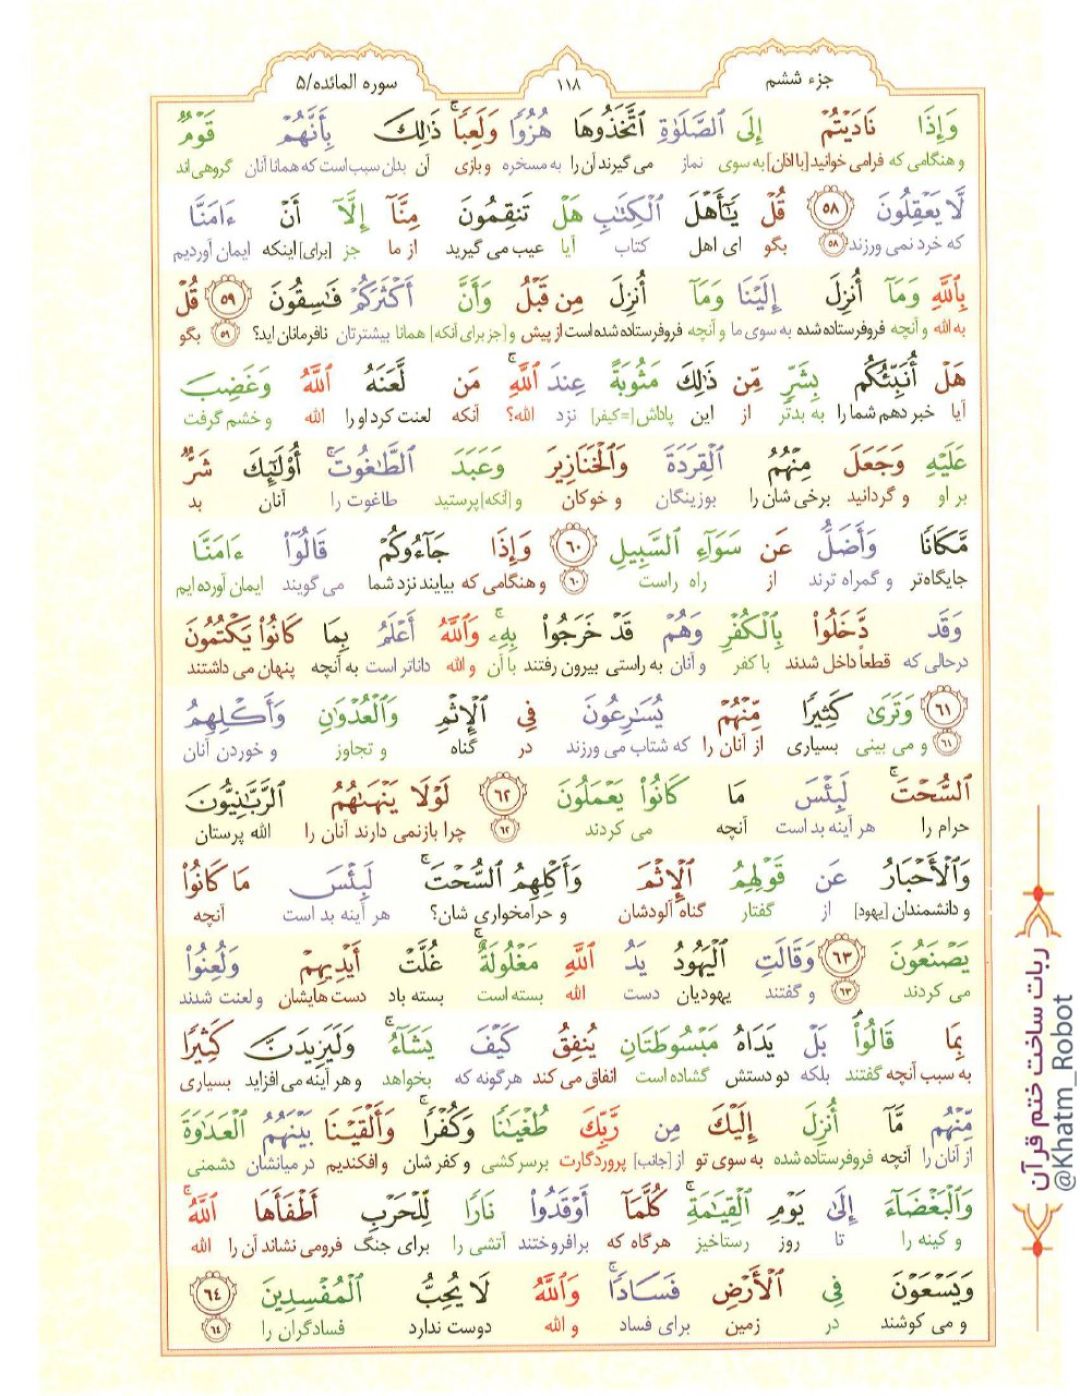 جزء ششم
۱۱۸
سوره المائده/۵
وَإِذَا نَادَيْتُمْ إِلَى ٱلصَّلَوٰةِ ٱتَّخَذُوهَا هُزُوًا وَلَعِبًا ۚ ذَٰلِكَ بِأَنَّهُمْ قَوْمٌ
و هنگامی که فرامی خوانید [با اذان] به سوی نماز می گیرند آن را به مسخره و بازی آن بدان سبب است که همانا آنان گروهی اند
لَّا يَعْقِلُونَ ۵۸ قُلْ يَٰٓأَهْلَ ٱلْكِتَٰبِ هَلْ تَنقِمُونَ مِنَّآ إِلَّآ أَنْ ءَامَنَّا
که خرد نمی ورزند ۵۸ بگو ای اهل کتاب آیا عیب می گیرید از ما جز [برای] اینکه ایمان آوردیم
بِٱللَّهِ وَمَآ أُنزِلَ إِلَيْنَا وَمَآ أُنزِلَ مِن قَبْلُ وَأَنَّ أَكْثَرَكُمْ فَٰسِقُونَ ۵۹ قُلْ
به الله و آنچه فروفرستاده شده به سوی ما و آنچه فروفرستاده شده است از پیش و [جز برای آنکه] همانا بیشترتان نافرمانان اید؟ ۵۹ بگو
هَلْ أُنَبِّئُكُم بِشَرٍّ مِّن ذَٰلِكَ مَثُوبَةً عِندَ ٱللَّهِ ۚ مَن لَّعَنَهُ ٱللَّهُ وَغَضِبَ
آیا خبر دهم شما را به بدتر از این پاداش [=کیفر] نزد الله؟ آنکه لعنت کرد او را الله و خشم گرفت
عَلَيْهِ وَجَعَلَ مِنْهُمُ ٱلْقِرَدَةَ وَٱلْخَنَازِيرَ وَعَبَدَ ٱلطَّٰغُوتَ ۚ أُو۟لَٰٓئِكَ شَرٌّ
بر او و گردانید برخی شان را بوزینگان و خوکان و [آنکه] پرستید طاغوت را آنان بد
مَّكَانًا وَأَضَلُّ عَن سَوَآءِ ٱلسَّبِيلِ ۶۰ وَإِذَا جَآءُوكُمْ قَالُوٓا۟ ءَامَنَّا
جایگاه‌تر و گمراه ترند از راه راست ۶۰ و هنگامی که بیایند نزد شما می گویند ایمان آورده ایم
وَقَد دَّخَلُوا۟ بِٱلْكُفْرِ وَهُمْ قَدْ خَرَجُوا۟ بِهِۦ ۚ وَٱللَّهُ أَعْلَمُ بِمَا كَانُوا۟ يَكْتُمُونَ
درحالی که قطعاً داخل شدند با کفر و آنان به راستی بیرون رفتند با آن و الله داناتر است به آنچه پنهان می داشتند
۶۱ وَتَرَىٰ كَثِيرًا مِّنْهُمْ يُسَٰرِعُونَ فِى ٱلْإِثْمِ وَٱلْعُدْوَٰنِ وَأَكْلِهِمُ
۶۱ و می بینی بسیاری از آنان را که شتاب می ورزند در گناه و تجاوز و خوردن آنان
ٱلسُّحْتَ ۚ لَبِئْسَ مَا كَانُوا۟ يَعْمَلُونَ ۶۲ لَوْلَا يَنْهَىٰهُمُ ٱلرَّبَّٰنِيُّونَ
حرام را هر آینه بد است آنچه می کردند ۶۲ چرا بازنمی دارند آنان را الله پرستان
وَٱلْأَحْبَارُ عَن قَوْلِهِمُ ٱلْإِثْمَ وَأَكْلِهِمُ ٱلسُّحْتَ ۚ لَبِئْسَ مَا كَانُوا۟
و دانشمندان [یهود] از گفتار گناه آلودشان و حرامخواری شان؟ هر آینه بد است آنچه
يَصْنَعُونَ ۶۳ وَقَالَتِ ٱلْيَهُودُ يَدُ ٱللَّهِ مَغْلُولَةٌ ۚ غُلَّتْ أَيْدِيهِمْ وَلُعِنُوا۟
می کردند ۶۳ و گفتند یهودیان دست الله بسته است بسته باد دست هایشان و لعنت شدند
بِمَا قَالُوا۟ ۘ بَلْ يَدَاهُ مَبْسُوطَتَانِ يُنفِقُ كَيْفَ يَشَآءُ ۚ وَلَيَزِيدَنَّ كَثِيرًا
به سبب آنچه گفتند بلکه دو دستش گشاده است انفاق می کند هرگونه که بخواهد و هر آینه می افزاید بسیاری
مِّنْهُم مَّآ أُنزِلَ إِلَيْكَ مِن رَّبِّكَ طُغْيَٰنًا وَكُفْرًا ۚ وَأَلْقَيْنَا بَيْنَهُمُ ٱلْعَدَٰوَةَ
از آنان را آنچه فروفرستاده شده به سوی تو از [جانب] پروردگارت بر سرکشی و کفر شان و افکندیم در میانشان دشمنی
وَٱلْبَغْضَآءَ إِلَىٰ يَوْمِ ٱلْقِيَٰمَةِ ۚ كُلَّمَآ أَوْقَدُوا۟ نَارًا لِّلْحَرْبِ أَطْفَأَهَا ٱللَّهُ ۚ
و کینه را تا روز رستاخیز هرگاه که برافروختند آتشی را برای جنگ فرومی نشاند آن را الله
وَيَسْعَوْنَ فِى ٱلْأَرْضِ فَسَادًا ۚ وَٱللَّهُ لَا يُحِبُّ ٱلْمُفْسِدِينَ ۶۴
و می کوشند در زمین برای فساد و الله دوست ندارد فسادگران را ۶۴
ربات ساخت ختم قرآن
@Khatm_Robot